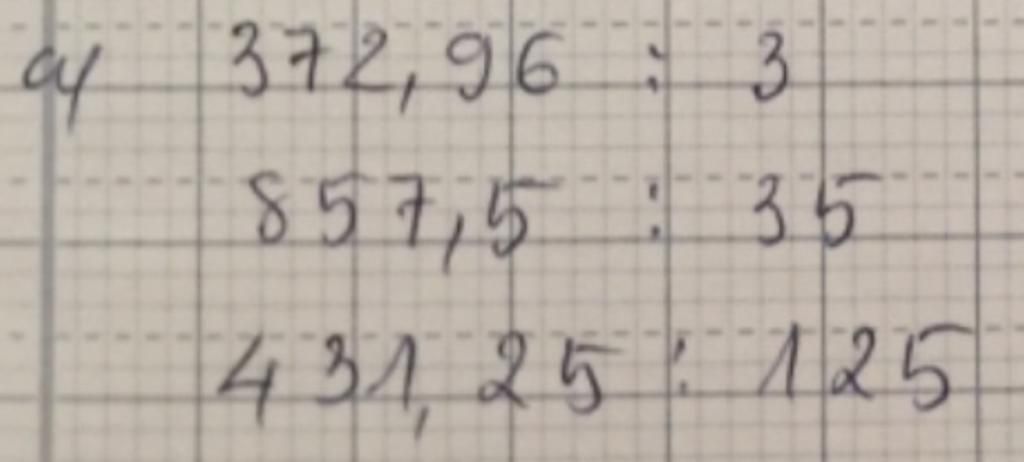 a) 372,96 : 3
857,5 : 35
431,25 : 125